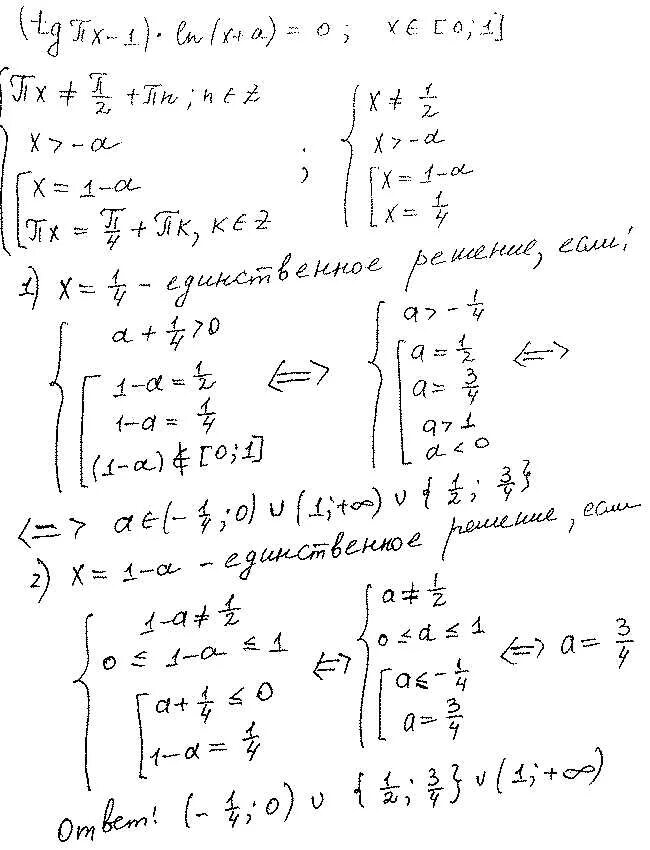 (tg πx − 1) · ln(x+a) = 0 ; x ∈ [0;1]
{ πx ≠ π/2 + πn ; n ∈ Z
x > −a
[ x = 1−a
πx = π/4 + πk, k ∈ Z
;
{ x ≠ 1/2
x > −a
[ x = 1−a
x = 1/4
1) x = 1/4 – единственное решение, если:
{ a + 1/4 > 0
[ 1−a = 1/2
1−a = 1/4
(1−a) ∉ [0;1]
<=>
{ a > −1/4
[ a = 1/2
a = 3/4
a > 1
a < 0
<=>
<=> a ∈ (−1/4; 0) ∪ (1; +∞) ∪ { 1/2 ; 3/4 }
2) x = 1−a – единственное решение, если
{ 1−a ≠ 1/2
0 ≤ 1−a ≤ 1
[ a + 1/4 ≤ 0
1−a = 1/4
<=>
{ a ≠ 1/2
0 ≤ a ≤ 1
[ a ≤ −1/4
a = 3/4
<=> a = 3/4
Ответ: (−1/4; 0) ∪ { 1/2 ; 3/4 } ∪ (1; +∞)